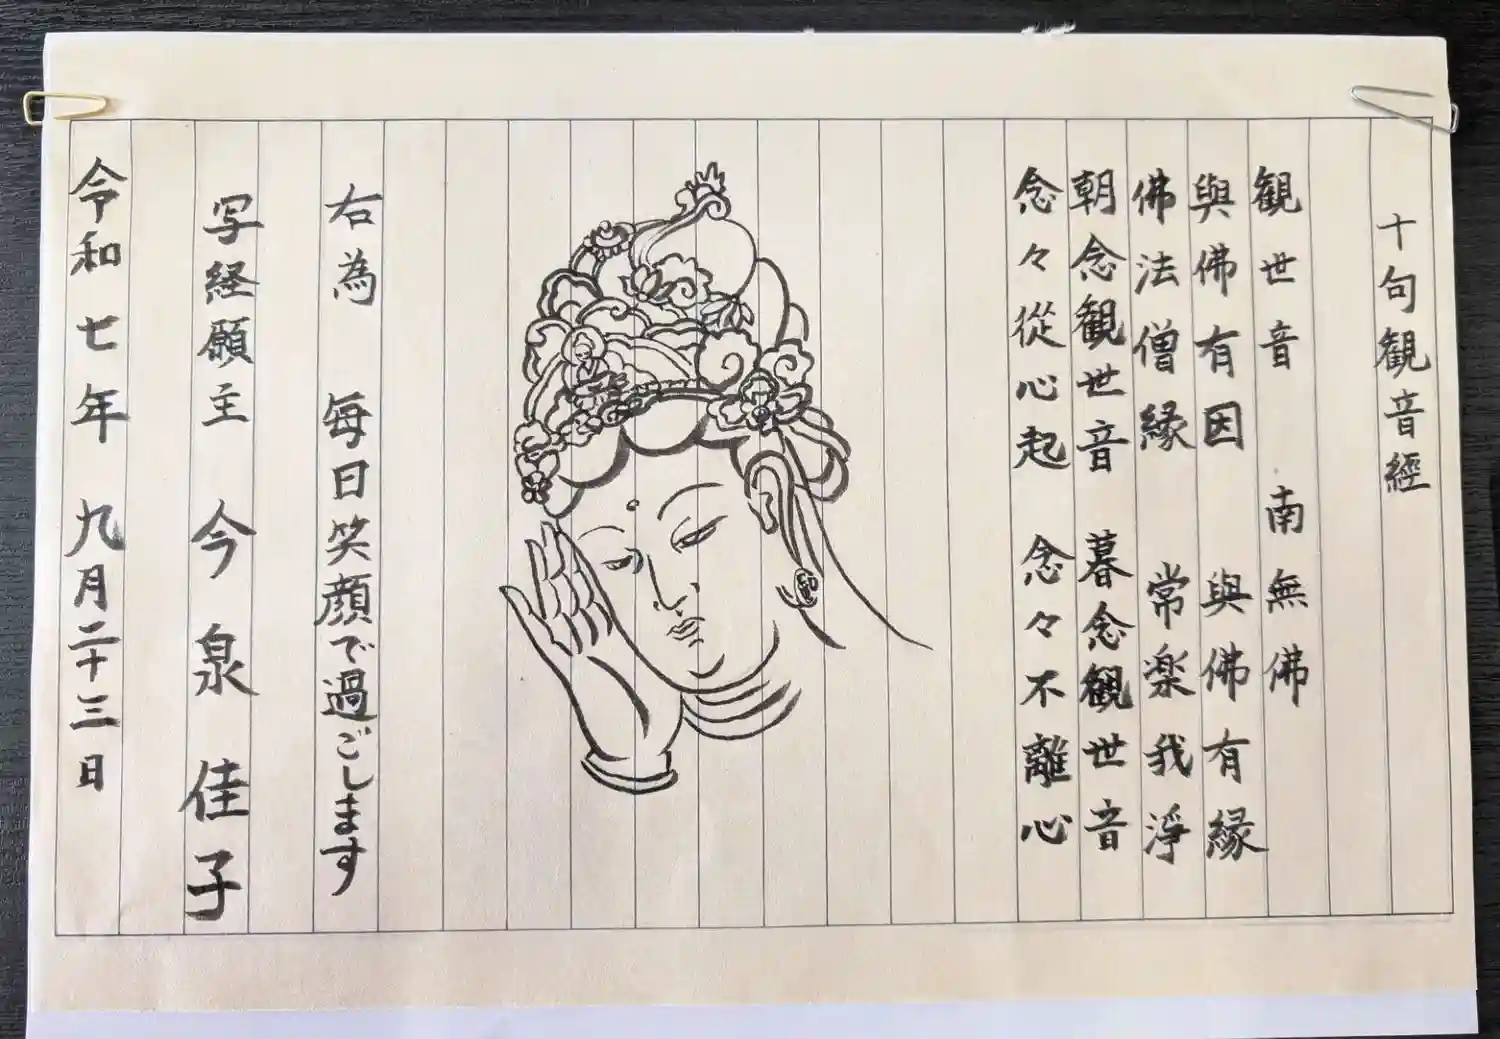 十句観音經
観世音　南無佛
與佛有因　與佛有縁
佛法僧縁　常楽我淨
朝念観世音　暮念観世音
念々從心起　念々不離心
右為　毎日笑顔で過ごします
写経願主　今泉佳子
令和七年　九月二十三日